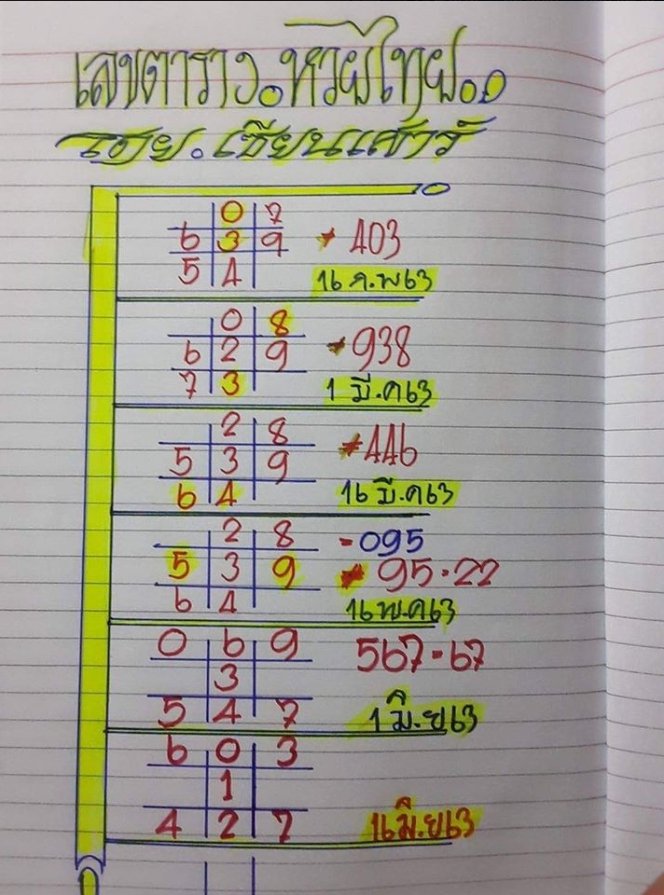 เลขตาราง.หวยไทย..
โดย.เซียนเสาร์
0 7
6 3 9 * 403
5 4 16 ก.พ 63
0 8
6 2 9 * 938
7 3 1 มี.ค 63
2 8
5 3 9 * 446
6 4 16 มี.ค 63
2 8 - 095
5 3 9 * 95.22
6 4 16 พ.ค 63
0 6 9 567-67
3
5 4 7 1 มิ.ย 63
6 0 3
1
4 2 7 16 มิ.ย 63